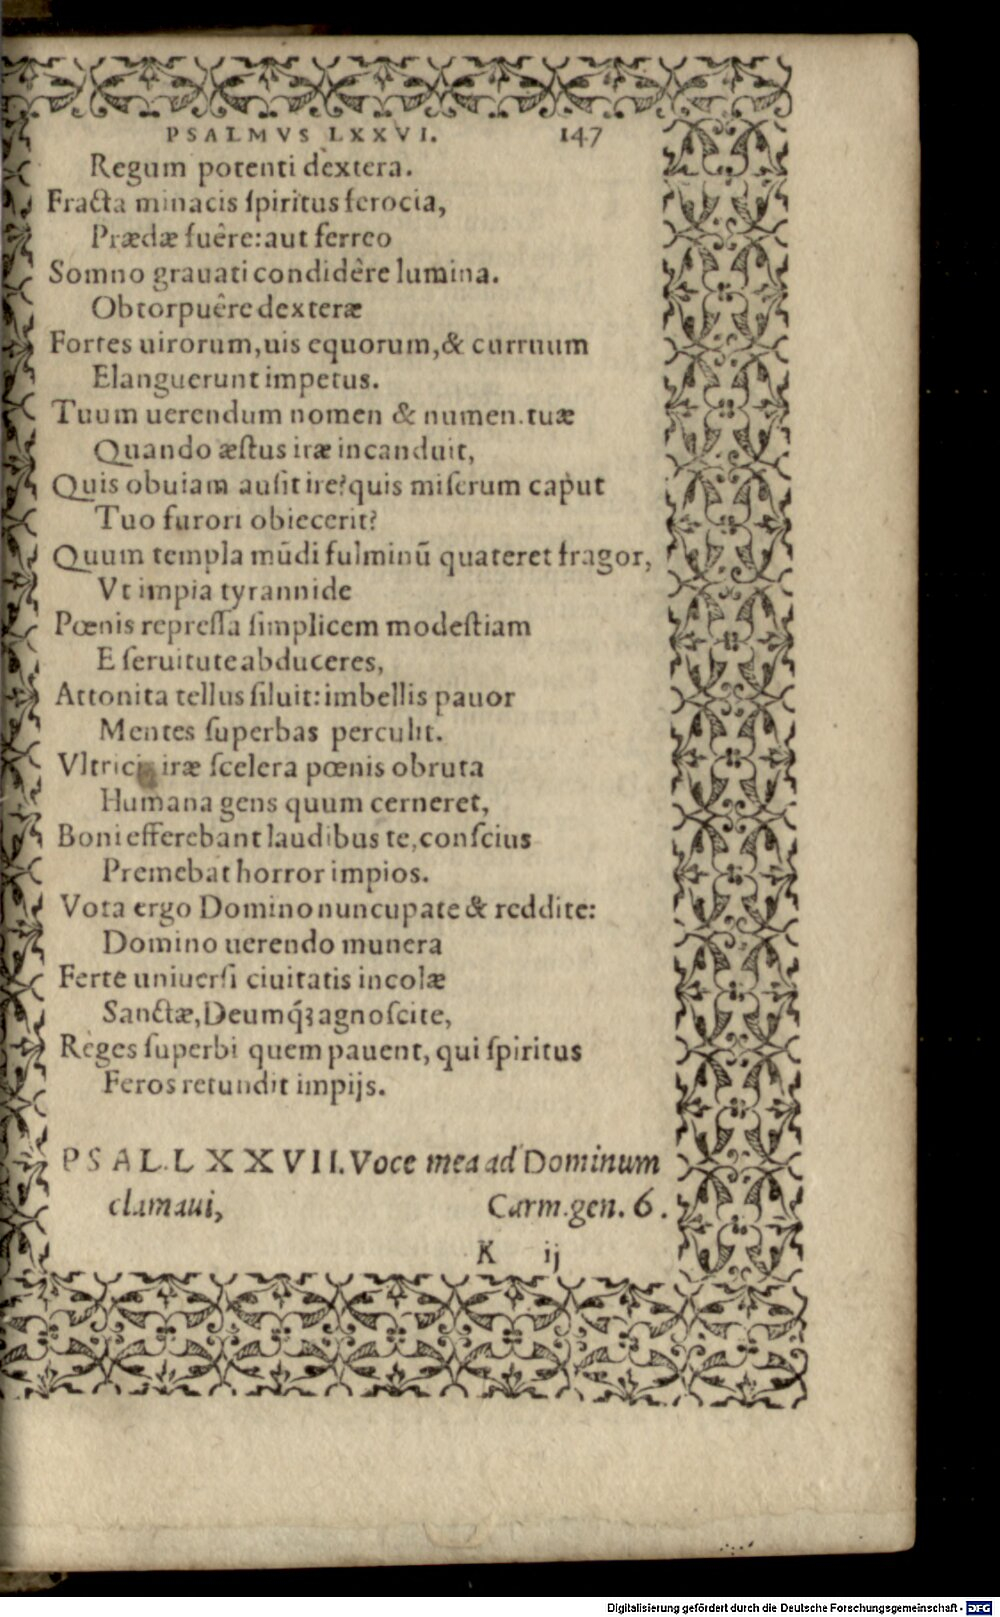 PSALMVS LXXVI. 147
Regum potenti dextera.
Fracta minacis ſpiritus ferocia,
Prædæ fuêre: aut ferreo
Somno grauati condidêre lumina.
Obtorpuêre dexteræ
Fortes uirorum, uis equorum, & curruum
Elanguerunt impetus.
Tuum uerendum nomen & numen. tuæ
Quando æſtus iræ incanduit,
Quis obuiam auſit ire? quis miſerum caput
Tuo furori obiecerit?
Quum templa mūdi fulminū quateret fragor,
Vt impia tyrannide
Pœnis repreſſa ſimplicem modeſtiam
E ſeruitute abduceres,
Attonita tellus ſiluit: imbellis pauor
Mentes ſuperbas perculit.
iræ ſcelera pœnis obruta
Humana gens quum cerneret,
Boni efferebant laudibus te, conſcius
Premebat horror impios.
Vota ergo Domino nuncupate & reddite:
Domino uerendo munera
Ferte uniuerſi ciuitatis incolæ
Sanctæ, Deumq́ꝫ agnoſcite,
Reges ſuperbi quem pauent, qui ſpiritus
Feros retundit impijs.
PSAL. LXXVII. Voce mea ad Dominum
clamaui, Carm. gen. 6.
K ij
Digitalisierung gefördert durch die Deutsche Forschungsgemeinschaft - DFG